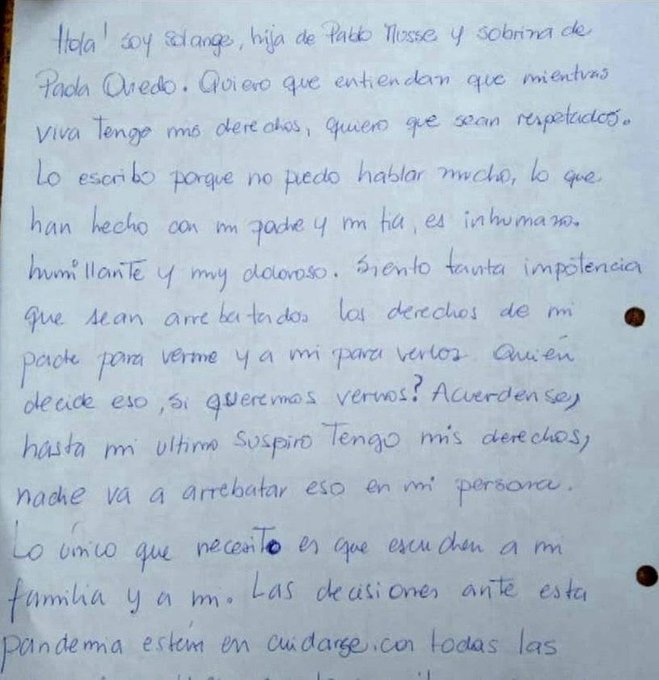 Hola! soy Solange, hija de Pablo Musse y sobrina de
Paola Oviedo. Quiero que entiendan que mientras
viva Tengo mis derechos, quiero que sean respetados.
Lo escribo porque no puedo hablar mucho, lo que
han hecho con mi padre y mi tia, es inhumano.
humillante y muy doloroso. Siento tanta impotencia
que sean arrebatados los derechos de mi
padre para verme y a mi para verlos. Quién
decide eso, si queremos vernos? Acuerdense,
hasta mi ultimo suspiro Tengo mis derechos,
nadie va a arrebatar eso en mi persona.
Lo único que necesito es que escuchen a mi
familia y a mi. Las decisiones ante esta
pandemia están en cuidarse. con todas las